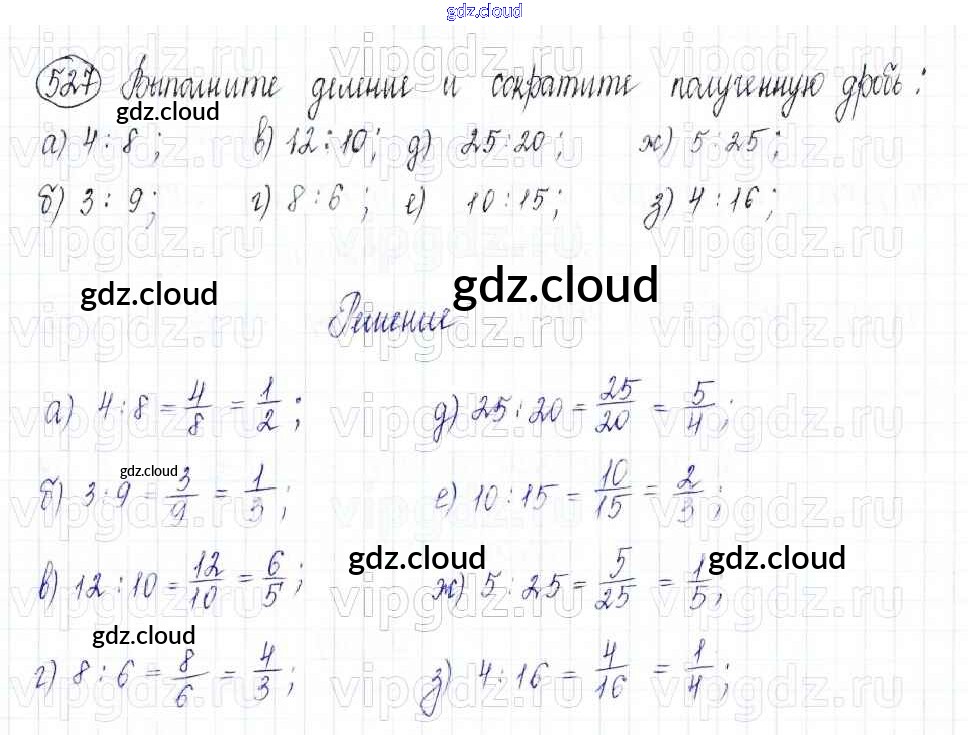 gdz.cloud
527 Выполните деление и сократите полученную дробь:
gdz.cloud
а) 4 : 8 ; в) 12 : 10; д) 25 : 20; ж) 5 : 25;
б) 3 : 9; г) 8 : 6 ; е) 10 : 15; з) 4 : 16;
gdz.cloud gdz.cloud
Решение
а) 4 : 8 = 4/8 = 1/2 ; д) 25 : 20 = 25/20 = 5/4 ;
gdz.cloud
б) 3 : 9 = 3/9 = 1/3 ; е) 10 : 15 = 10/15 = 2/3 ;
gdz.cloud gdz.cloud
в) 12 : 10 = 12/10 = 6/5 ; ж) 5 : 25 = 5/25 = 1/5 ;
gdz.cloud
г) 8 : 6 = 8/6 = 4/3 ; з) 4 : 16 = 4/16 = 1/4 ;
vipgdz.ru